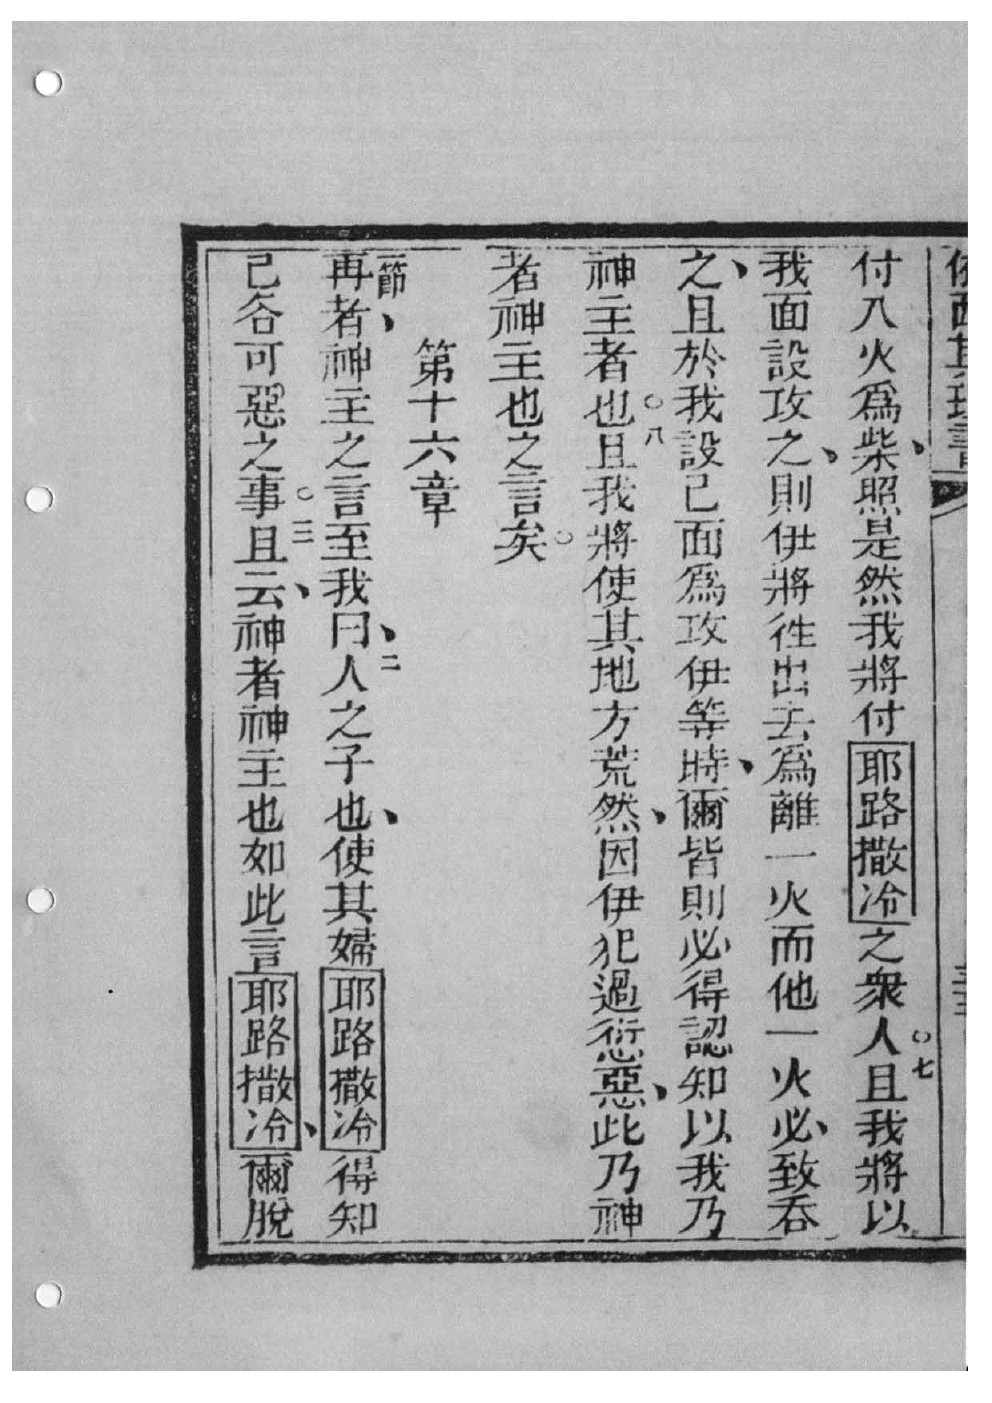 付入火爲柴、照是然我將付耶路撒冷之衆人○七且我將以
我面設攻之、則伊將徃出去爲離一火而他一火必、致吞
之、且於我設己面爲攻伊等時、爾皆則必得認知以我乃
神主者也○八且我將使其地方荒然、因伊犯過愆惡、此乃神
者神主也之言矣○
第十六章
一節、再者神主之言至我曰、二人之子也、使其婦耶路撒冷得知
己各可惡之事○三且云、神者神主也如此言耶路撒冷、爾脫